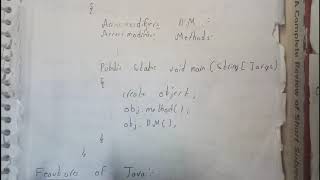 {
Access modifiers D.M :
Access modifiers Methods:
Public static void main (String [ ] args)
{
create object;
obj. method();
obj. D.M();
}
}
Features of Java:
A Complete Review of Short Subj